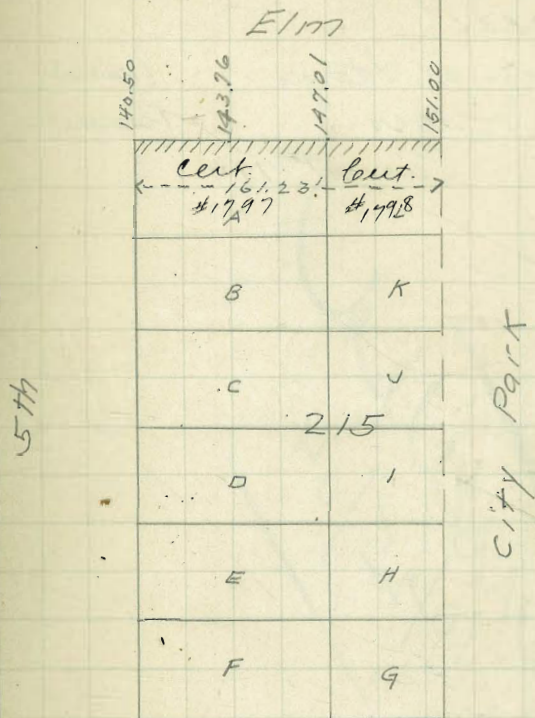 Elm
140.50 143.76 147.01 151.00
Cert. Cert.
161.23'
#1797 #1798
A
B K
C J
215
D I
E H
F G
5th
City Park